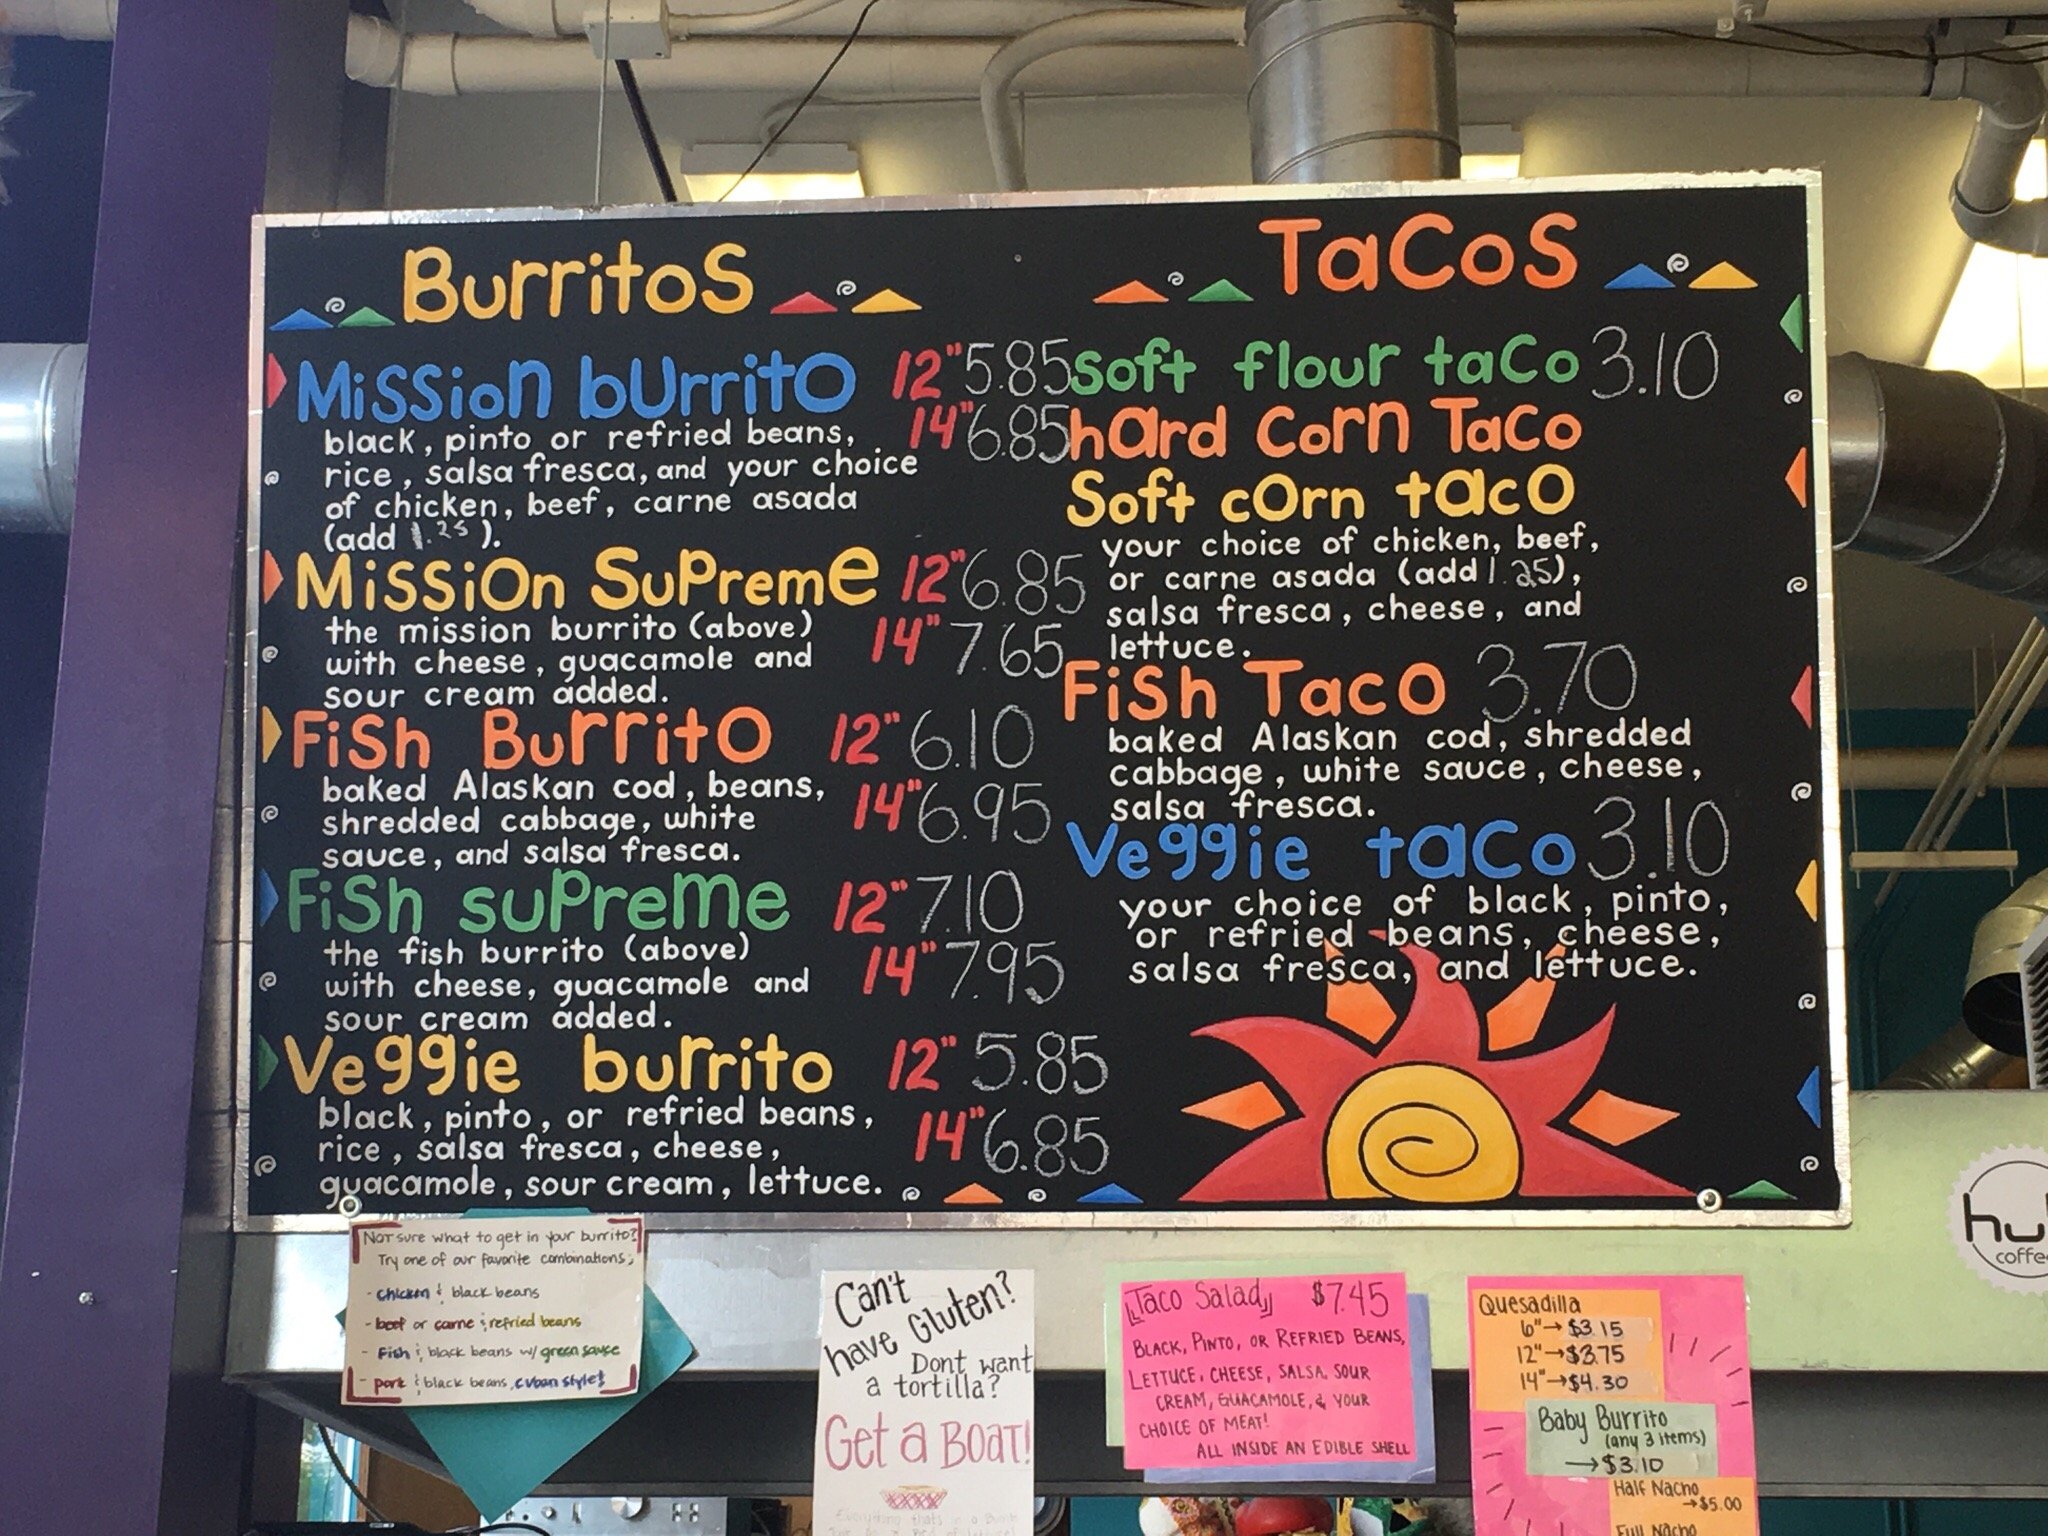 Burritos
Mission burrito 12" 5.85
14" 6.85
black, pinto or refried beans,
rice, salsa fresca, and your choice
of chicken, beef, carne asada
(add 1.25).
Mission Supreme 12" 6.85
14" 7.65
the mission burrito (above)
with cheese, guacamole and
sour cream added.
Fish Burrito 12" 6.10
14" 6.95
baked Alaskan cod, beans,
shredded cabbage, white
sauce, and salsa fresca.
Fish supreme 12" 7.10
14" 7.95
the fish burrito (above)
with cheese, guacamole and
sour cream added.
Veggie burrito 12" 5.85
14" 6.85
black, pinto, or refried beans,
rice, salsa fresca, cheese,
guacamole, sour cream, lettuce.
Tacos
Soft flour taco 3.10
hard corn Taco
Soft corn taco
your choice of chicken, beef,
or carne asada (add 1.25),
salsa fresca, cheese, and
lettuce.
Fish Taco 3.70
baked Alaskan cod, shredded
cabbage, white sauce, cheese,
salsa fresca.
Veggie taco 3.10
your choice of black, pinto,
or refried beans, cheese,
salsa fresca, and lettuce.
Not sure what to get in your burrito?
Try one of our favorite combinations;
- chicken & black beans
- beef or carne & refried beans
- Fish & black beans w/ green sauce
- pork & black beans, cuban style!
Can't
have Gluten?
Dont want
a tortilla?
Get a BOAT!
Everything thats in a Burrito
Taco Salad $7.45
BLACK, PINTO, OR REFRIED BEANS,
LETTUCE, CHEESE, SALSA, SOUR
CREAM, GUACAMOLE, & YOUR
CHOICE OF MEAT!
ALL INSIDE AN EDIBLE SHELL
Quesadilla
6" → $3.15
12" → $3.75
14" → $4.30
Baby Burrito
(any 3 items)
→ $3.10
Half Nacho
→ $5.00
Full Nacho
hu
coffee